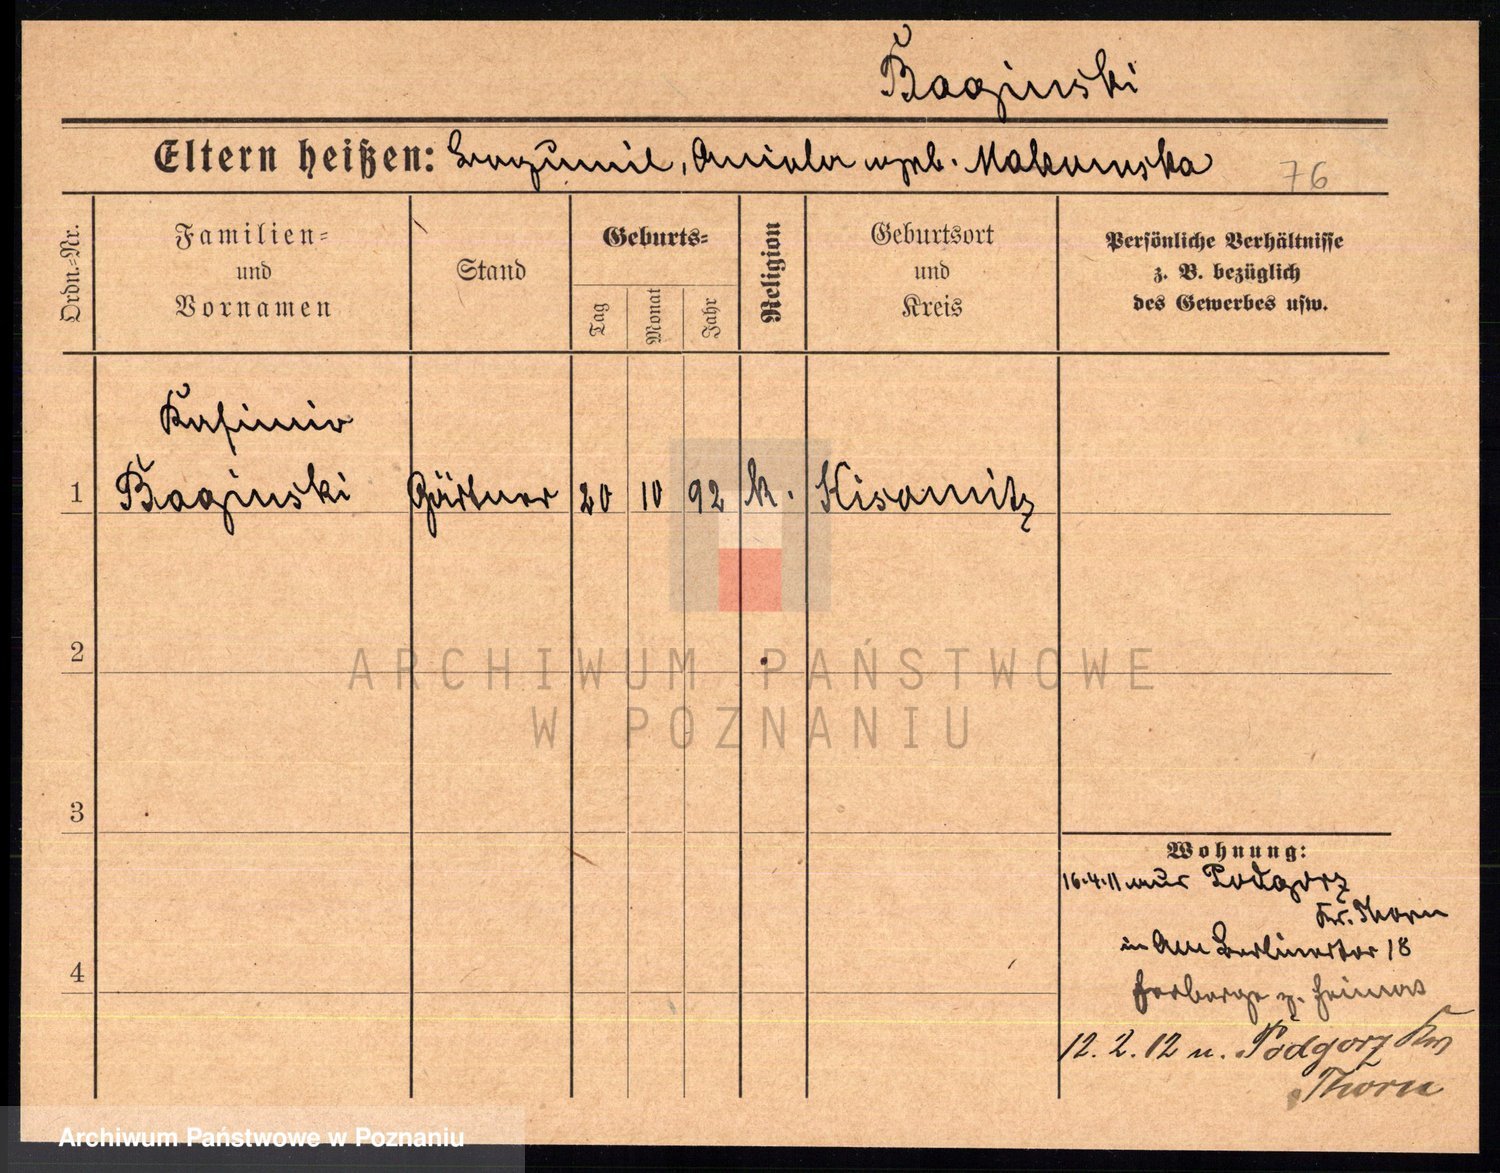 Baginski
Eltern heißen: Bogumil, Aniela geb. Makowska
76
Ordn.=Nr.
Familien=
und
Vornamen
Stand
Geburts=
Tag
Monat
Jahr
Religion
Geburtsort
und
Kreis
Persönliche Verhältnisse
z. B. bezüglich
des Gewerbes usw.
Kasimir
1 Baginski Gärtner 20 10 92 k.
2
ARCHIWUM PAŃSTWOWE
W POZNANIU
3
Wohnung:
16.4.11 aus Podgorz
Kr. Thorn
in Am Berlinertor 18
4
Herberge z. Heimat
12. 2. 12 n. Podgorz Kr
Thorn
Archiwum Państwowe w Poznaniu